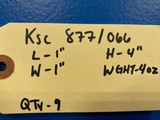 Ksc 877/066
L-1" H-4"
W-1" WGHT-4oz
QTY-9